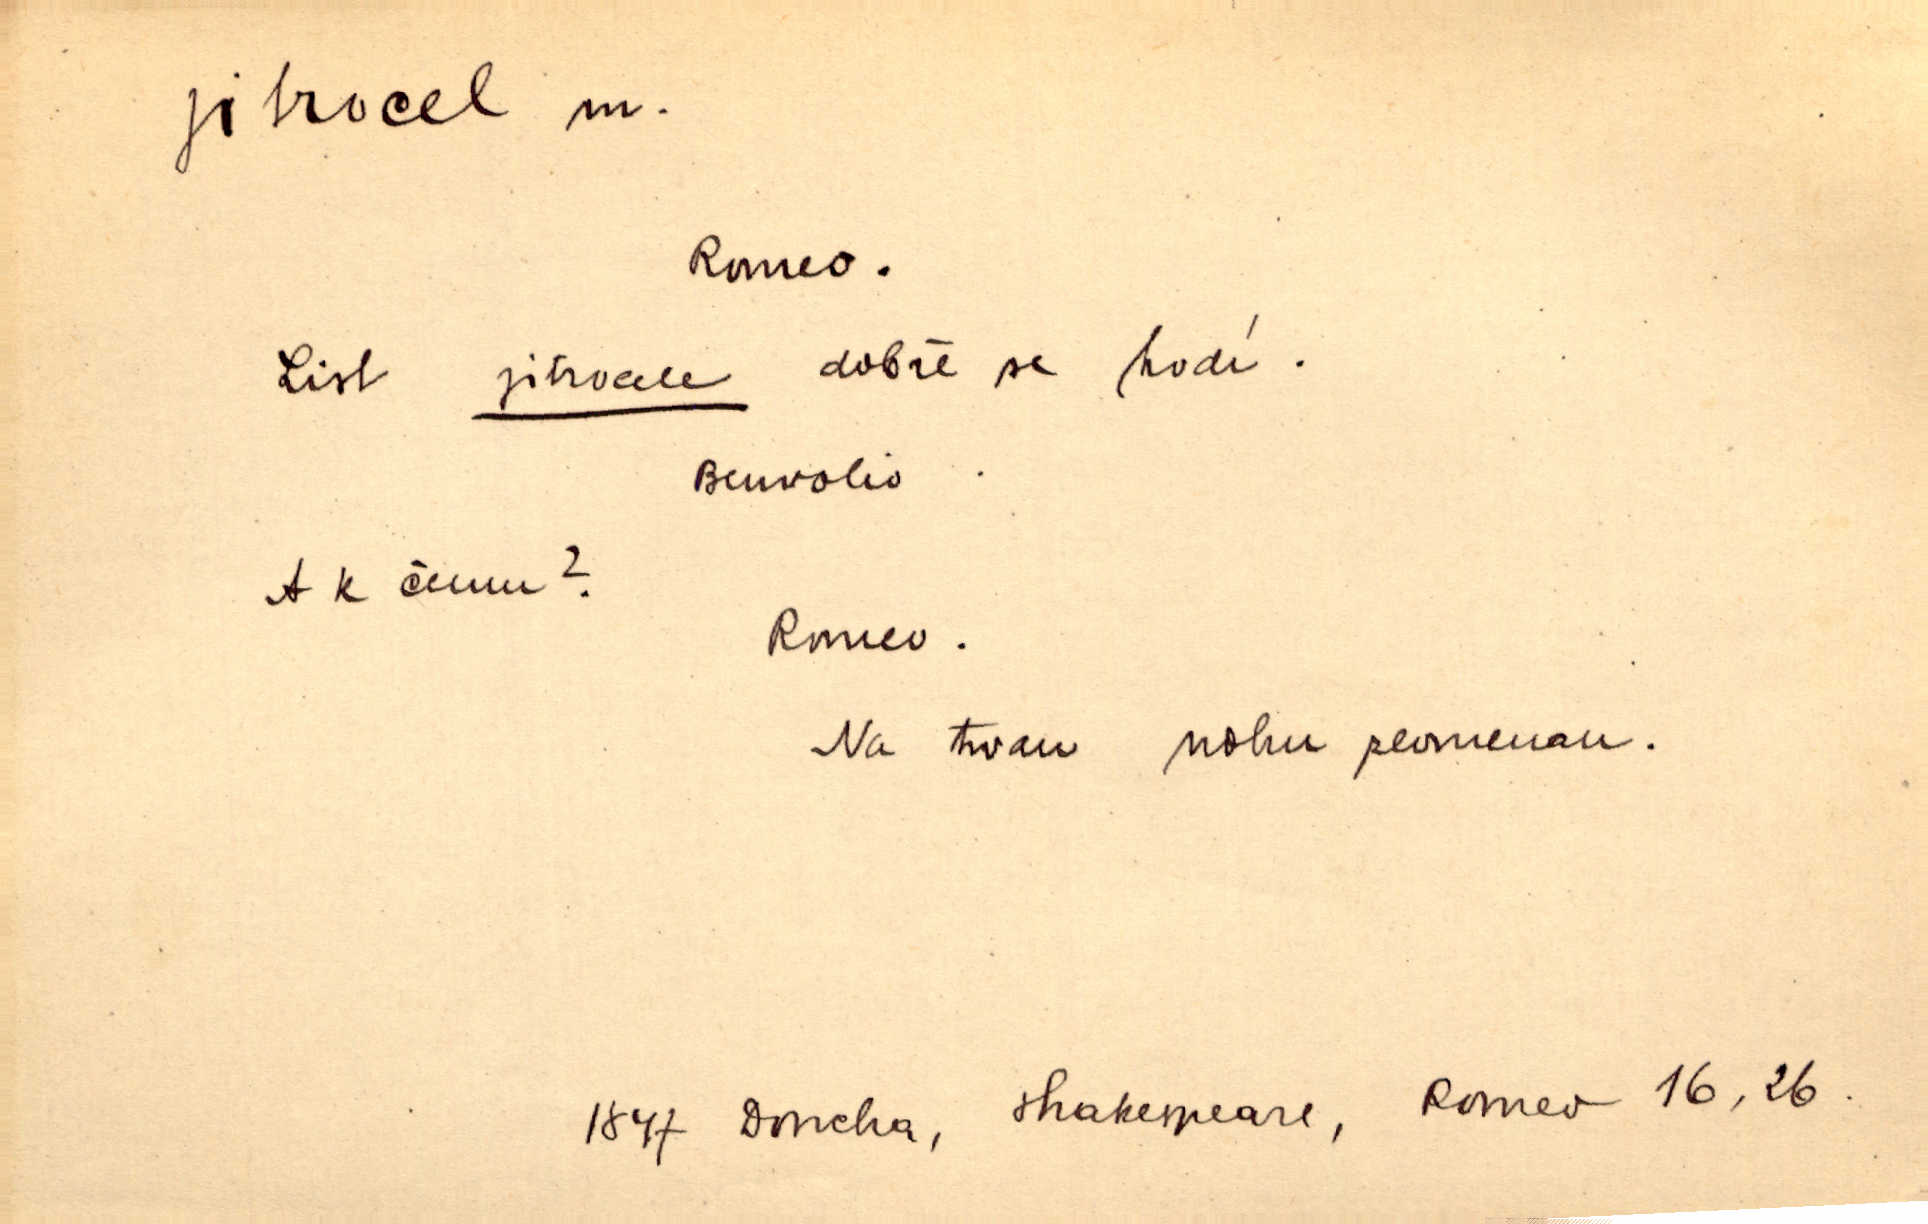 jitrocel m.
Romeo.
List jitrocele dobře se hodí.
Benvolio.
A k čemu?
Romeo.
Na tvau nohu zlomenau.
1847 Doucha, Shakespeare, Romeo 16, 26.